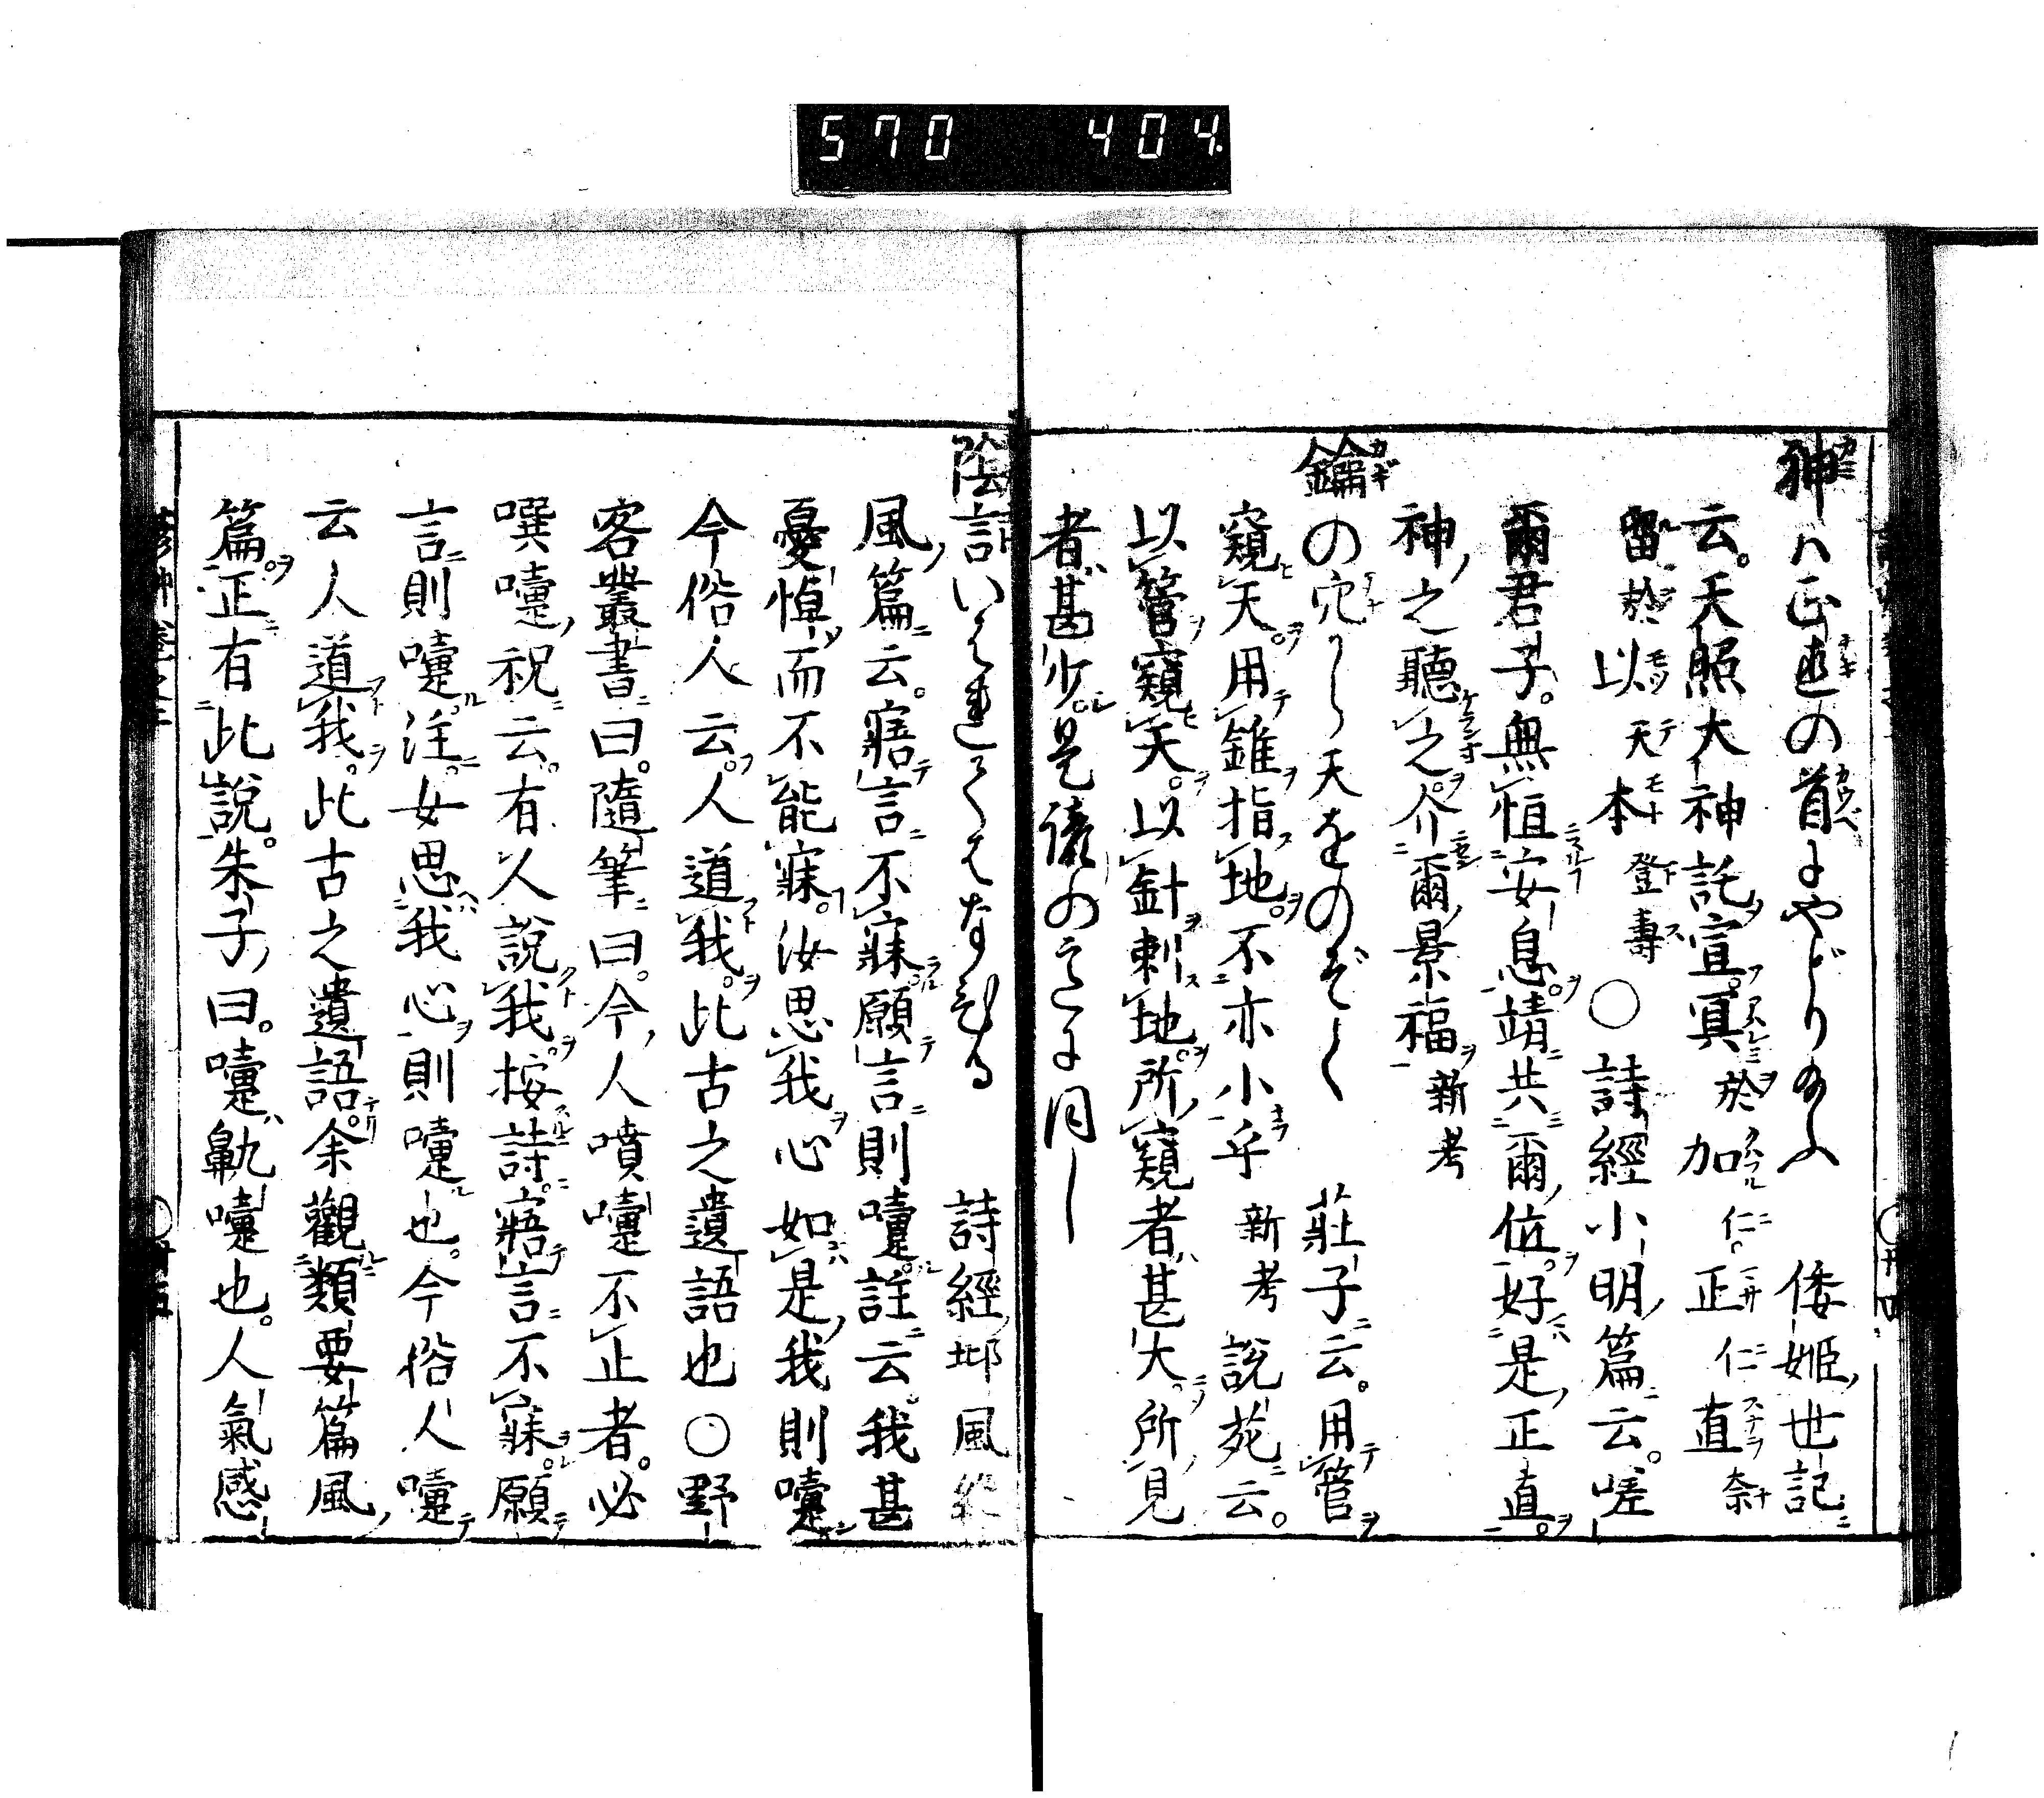 570 404.
神ハ正直の首にやどり給ふ 倭姬世記
云。天照大神託宣。冥於加仁。正仁直奈
留於以天本登壽 ○詩經小明篇云。嗟
爾君子。無恒安息。靖共爾位。好是正直。
神之聽之介爾景福 新考
鑰の穴から天をのぞく 莊子云。用管
窺天。用錐指地。不亦小乎 新考 說苑云。
以管窺天。以針刺地。所窺者甚大。所見
者甚少。是諺のこゝろに同し
陰言いはれてくはなひる 詩經邶風終
風篇云。寤言不寐願言則嚏註云。我甚
憂悼而不能寐。汝思我心如是我則嚏
今俗人云。人道我。此古之遺語也 ○野
客叢書曰。隨筆曰。今人噴嚏不止者。必
噀嚏祝云。有人說我按詩。寤言不寐。願
言則嚏注。女思我心則嚏也。今俗人嚏
云人道我。此古之遺語。余觀類要篇風
篇。正有此說。朱子曰。嚏鼽嚏也。人氣感